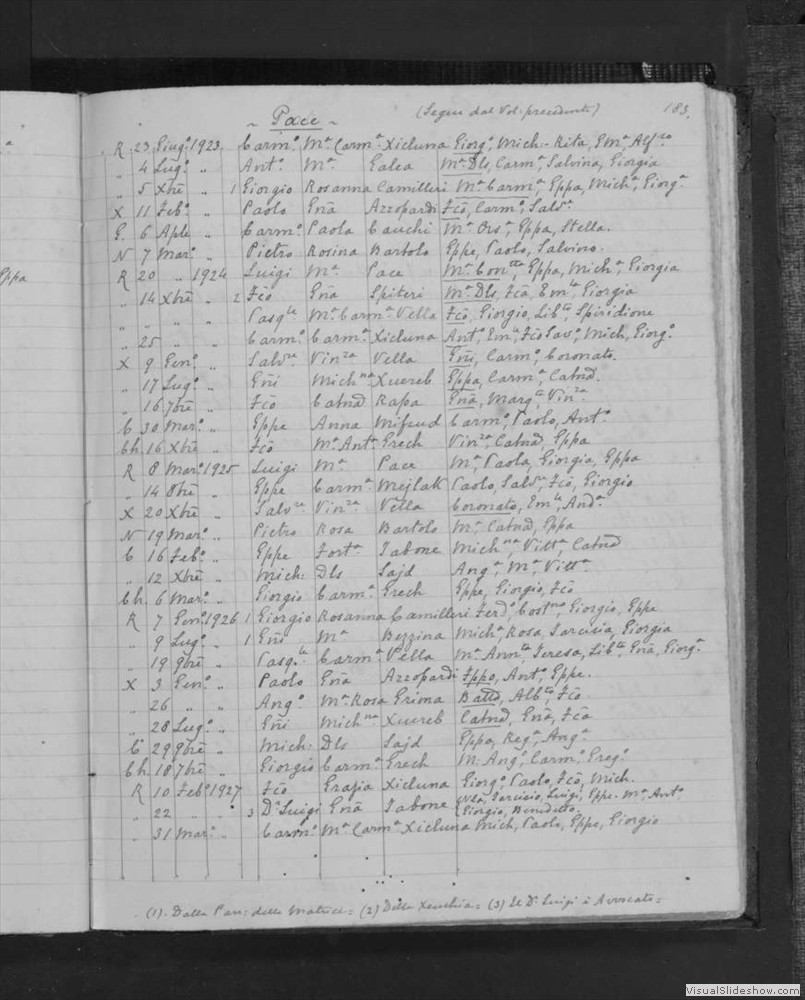 ~ Pace ~ (Segue dal Vol. precedente) 183.
R 23 Giug.º 1923 Carm.º M.ª Carm.ª Xicluna Giorg.º Mich.- Rita, Em.ª, Alf.so
„ 4 Lug.º „ Ant.º M.ª Galea M.ª Dls, Carm.ª, Salvina, Giorgia
„ 5 Xbre „ 1 Giorgio Rosanna Camilleri M.ª Carm.ª, Eppa, Mich.ª, Giorg.ª
X 11 Feb.º „ Paolo Gna Azzopardi Fco, Carm.º, Salv.ª
G. 6 Aple „ Carm.º Paola Cauchi M.ª Ors.ª, Eppa, Stella.
N 7 Mar.º „ Pietro Rosina Bartolo Eppe, Paolo, Salvino.
R 20 „ 1924 Luigi M.ª Pace M.ª Con.tta, Eppa, Mich.ª, Giorgia
„ 14 Xbre „ 2 Fco Gna Spiteri M.ª Dls, Fca, Em.la, Giorgia
„ „ „ „ Pasq.le M.ª Carm.ª Vella Fco, Giorgio, Lib.to, Spiridione
„ 25 „ „ Carm.º Carm.ª Xicluna Ant.º, Em.le, Fco Sav.º, Mich, Giorg.º
X 9 Gen.º „ Salv.re Vin.za Vella Gni, Carm.º, Coronato.
„ 17 Lug.º „ Gni Mich.na Xuereb Eppa, Carm.ª, Catnd.
„ 16 7bre „ Fco Catnd Rapa Gna, Marg.ta, Vin.za
C 30 Mar.º „ Eppe Anna Mifsud Carm.º, Paolo, Ant.º
Ch. 16 Xbre „ Fco M.ª Ant.ª Grech Vin.za, Catnd, Eppa
R 8 Mar.º 1925 Luigi M.ª Pace M.ª, Paola, Giorgia, Eppa
„ 14 8bre „ Eppe Carm.ª Mejlak Paolo, Salv.re, Fco, Giorgio
X 20 Xbre „ Salv.re Vin.za Vella Coronato, Em.le, And.ª
N 19 Mar.º „ Pietro Rosa Bartolo M.ª Catnd, Eppa
C 16 Feb.º „ Eppe Fort.ª Tabone Mich.na, Vitt.ª, Catnd
„ 12 Xbre „ Mich: Dls Sajd Ang.ª, M.ª Vitt.ª
Ch. 6 Mar.º „ Giorgio Carm.ª Grech Eppe, Giorgio, Fco
R 7 Gen.º 1926 1 Giorgio Rosanna Camilleri Ferd.º, Cost.no, Giorgio, Eppe
„ 9 Lug.º „ 1 Gni M.ª Bezzina Mich.ª, Rosa, Tarcisia, Giorgia
„ 19 9bre „ Pasq.le Carm.ª Vella M.ª Ann.ta, Teresa, Lib.ta, Gna, Giorg.ª
X 3 Gen.º „ Paolo Gna Azzopardi Fppo, Ant.º, Eppe.
„ 26 „ „ Ang.º M.ª Rosa Grima Batta, Alb.to, Fco
„ 28 Lug.º „ Gni Mich.na Xuereb Catnd, Gna, Fca
C 29 9bre „ Mich: Dls Sajd Eppa, Reg.ª, Ang.ª
Ch. 10 7bre „ Giorgio Carm.ª Grech M: Ang.º, Carm.º, Greg.º
R 10 Feb.º 1927 Fco Grazia Xicluna Giorg.º, Paolo, Fco, Mich.
„ 22 „ „ 3 Dr. Luigi Gna Tabone Tarcisio, Luigi, Eppe. M.ª Ant.ª Giorgio, Benedetto.
„ 31 Mar.º „ Carm.º M.ª Carm.ª Xicluna Mich, Paolo, Eppe, Giorgio
(1). Dalla Par: della Matrice= (2) Della Xeuchia= (3) Il Dr. Luigi è Avvocato=
Eppa
VisualSlideshow.com